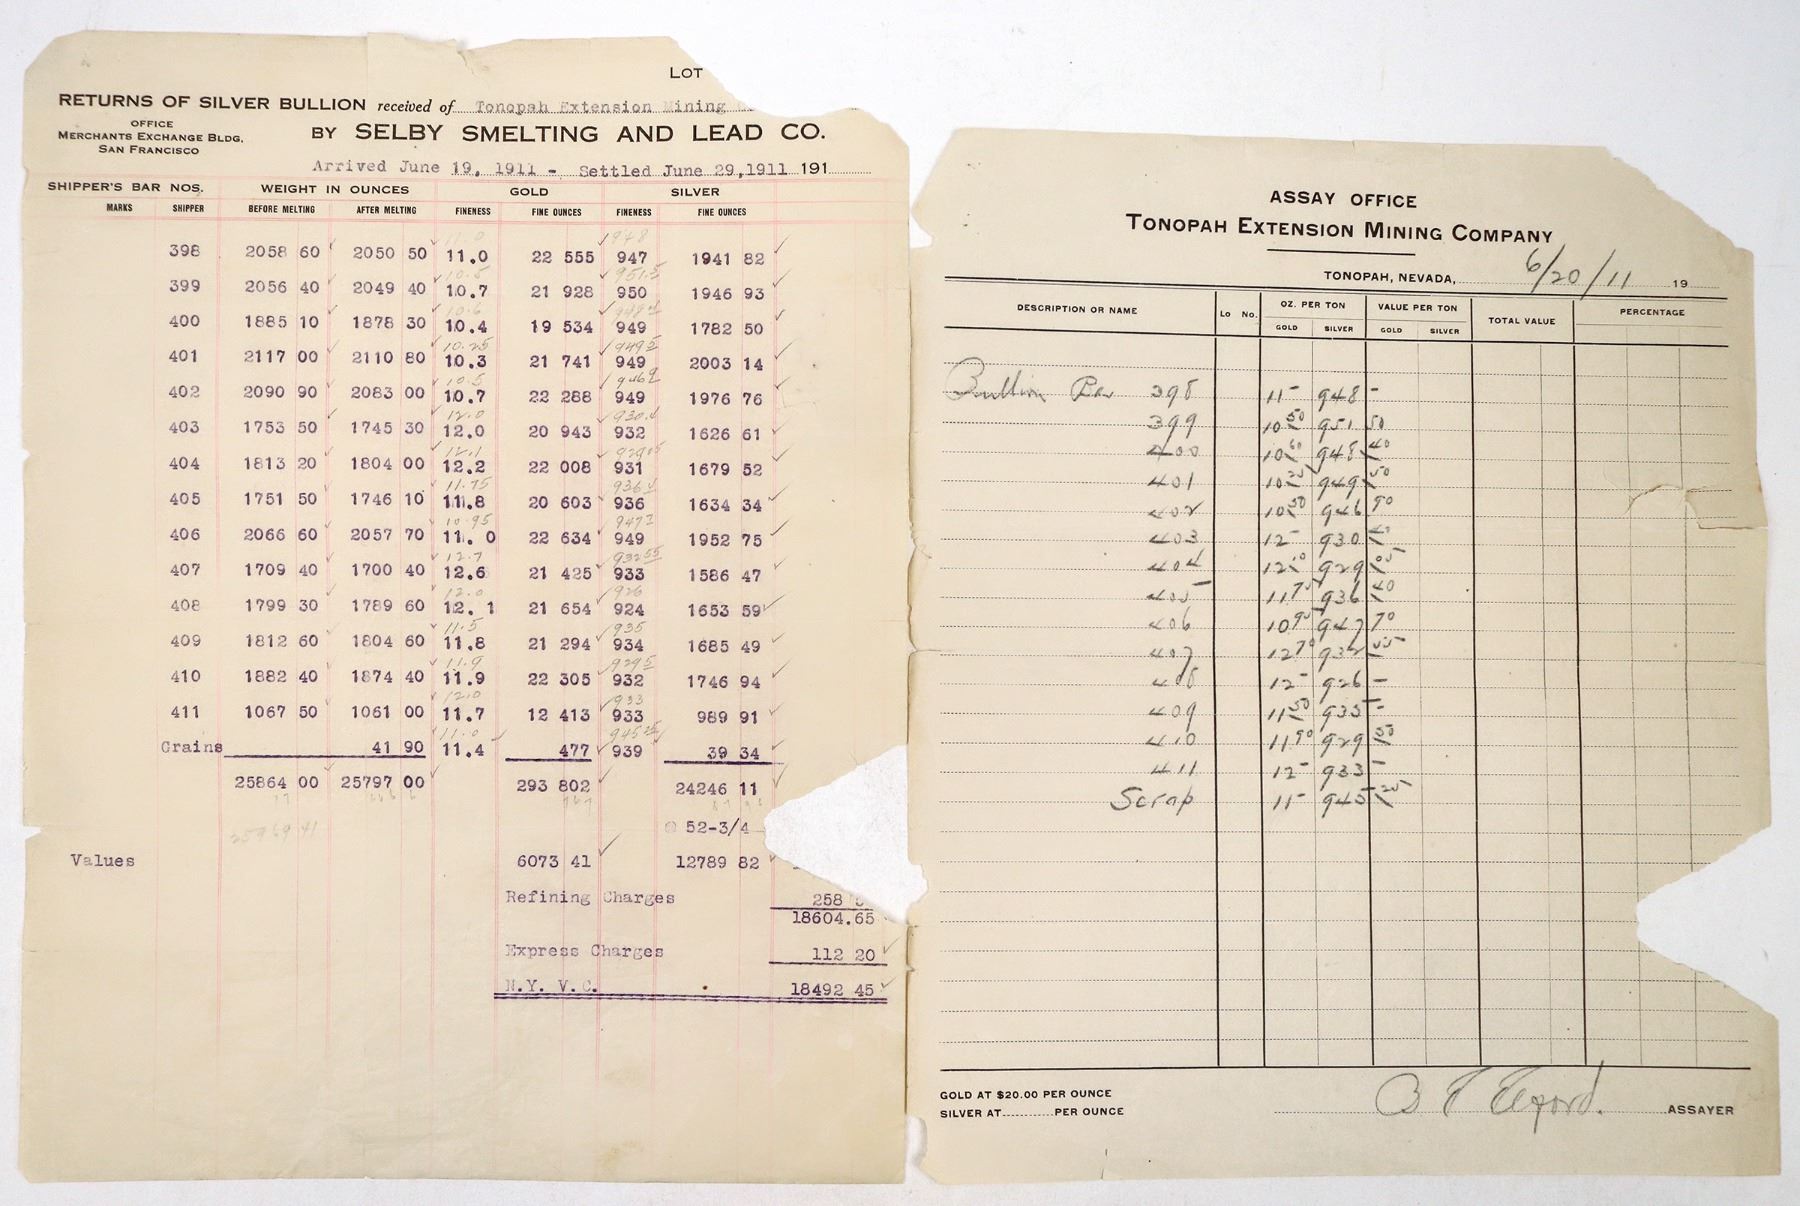 LOT
RETURNS OF SILVER BULLION received of Tonopah Extension Mining
OFFICE
MERCHANTS EXCHANGE BLDG.
SAN FRANCISCO
BY SELBY SMELTING AND LEAD CO.
Arrived June 19, 1911 - Settled June 29,1911 191
SHIPPER'S BAR NOS. WEIGHT IN OUNCES GOLD SILVER
MARKS SHIPPER BEFORE MELTING AFTER MELTING FINENESS FINE OUNCES FINENESS FINE OUNCES
11.0 948
398 2058 60 2050 50 11.0 22 555 947 1941 82
10.5 951.5
399 2056 40 2049 40 10.7 21 928 950 1946 93
10.6 948 4
400 1885 10 1878 30 10.4 19 534 949 1782 50
10.25 949 5
401 2117 00 2110 80 10.3 21 741 949 2003 14
10.5 946 9
402 2090 90 2083 00 10.7 22 288 949 1976 76
12.0 930.4
403 1753 50 1745 30 12.0 20 943 932 1626 61
12.1 929 05
404 1813 20 1804 00 12.2 22 008 931 1679 52
11.75 936 4
405 1751 50 1746 10 11.8 20 603 936 1634 34
10.95 947 7
406 2066 60 2057 70 11. 0 22 634 949 1952 75
12.7 932 55
407 1709 40 1700 40 12.6 21 425 933 1586 47
12.0 926
408 1799 30 1789 60 12. 1 21 654 924 1653 59
11.5 935
409 1812 60 1804 60 11.8 21 294 934 1685 49
11.9 929 5
410 1882 40 1874 40 11.9 22 305 932 1746 94
12.0 933
411 1067 50 1061 00 11.7 12 413 933 989 91
11.0 945 25
Grains 41 90 11.4 477 939 39 34
25864 00 25797 00 293 802 24246 11
@ 52-3/4
Values 6073 41 12789 82
Refining Charges 258
18604.65
Express Charges 112 20
N.Y. V.C. 18492 45
ASSAY OFFICE
TONOPAH EXTENSION MINING COMPANY
TONOPAH, NEVADA, 6/20/11 19
DESCRIPTION OR NAME Lo No. OZ. PER TON VALUE PER TON TOTAL VALUE PERCENTAGE
GOLD SILVER GOLD SILVER
Bullion Bar 398 11- 948 -
399 10 50 951 50
400 10 60 948 40
401 10 25 949 50
402 10 50 946 90
403 12- 930 40
404 12 10 929 05
405 11 75 936 40
406 10 95 947 70
407 12 70 932 55
408 12- 926 -
409 11 50 935 -
410 11 90 929 50
411 12- 933 -
Scrap 11- 945 25
GOLD AT $20.00 PER OUNCE
SILVER AT PER OUNCE
ASSAYER